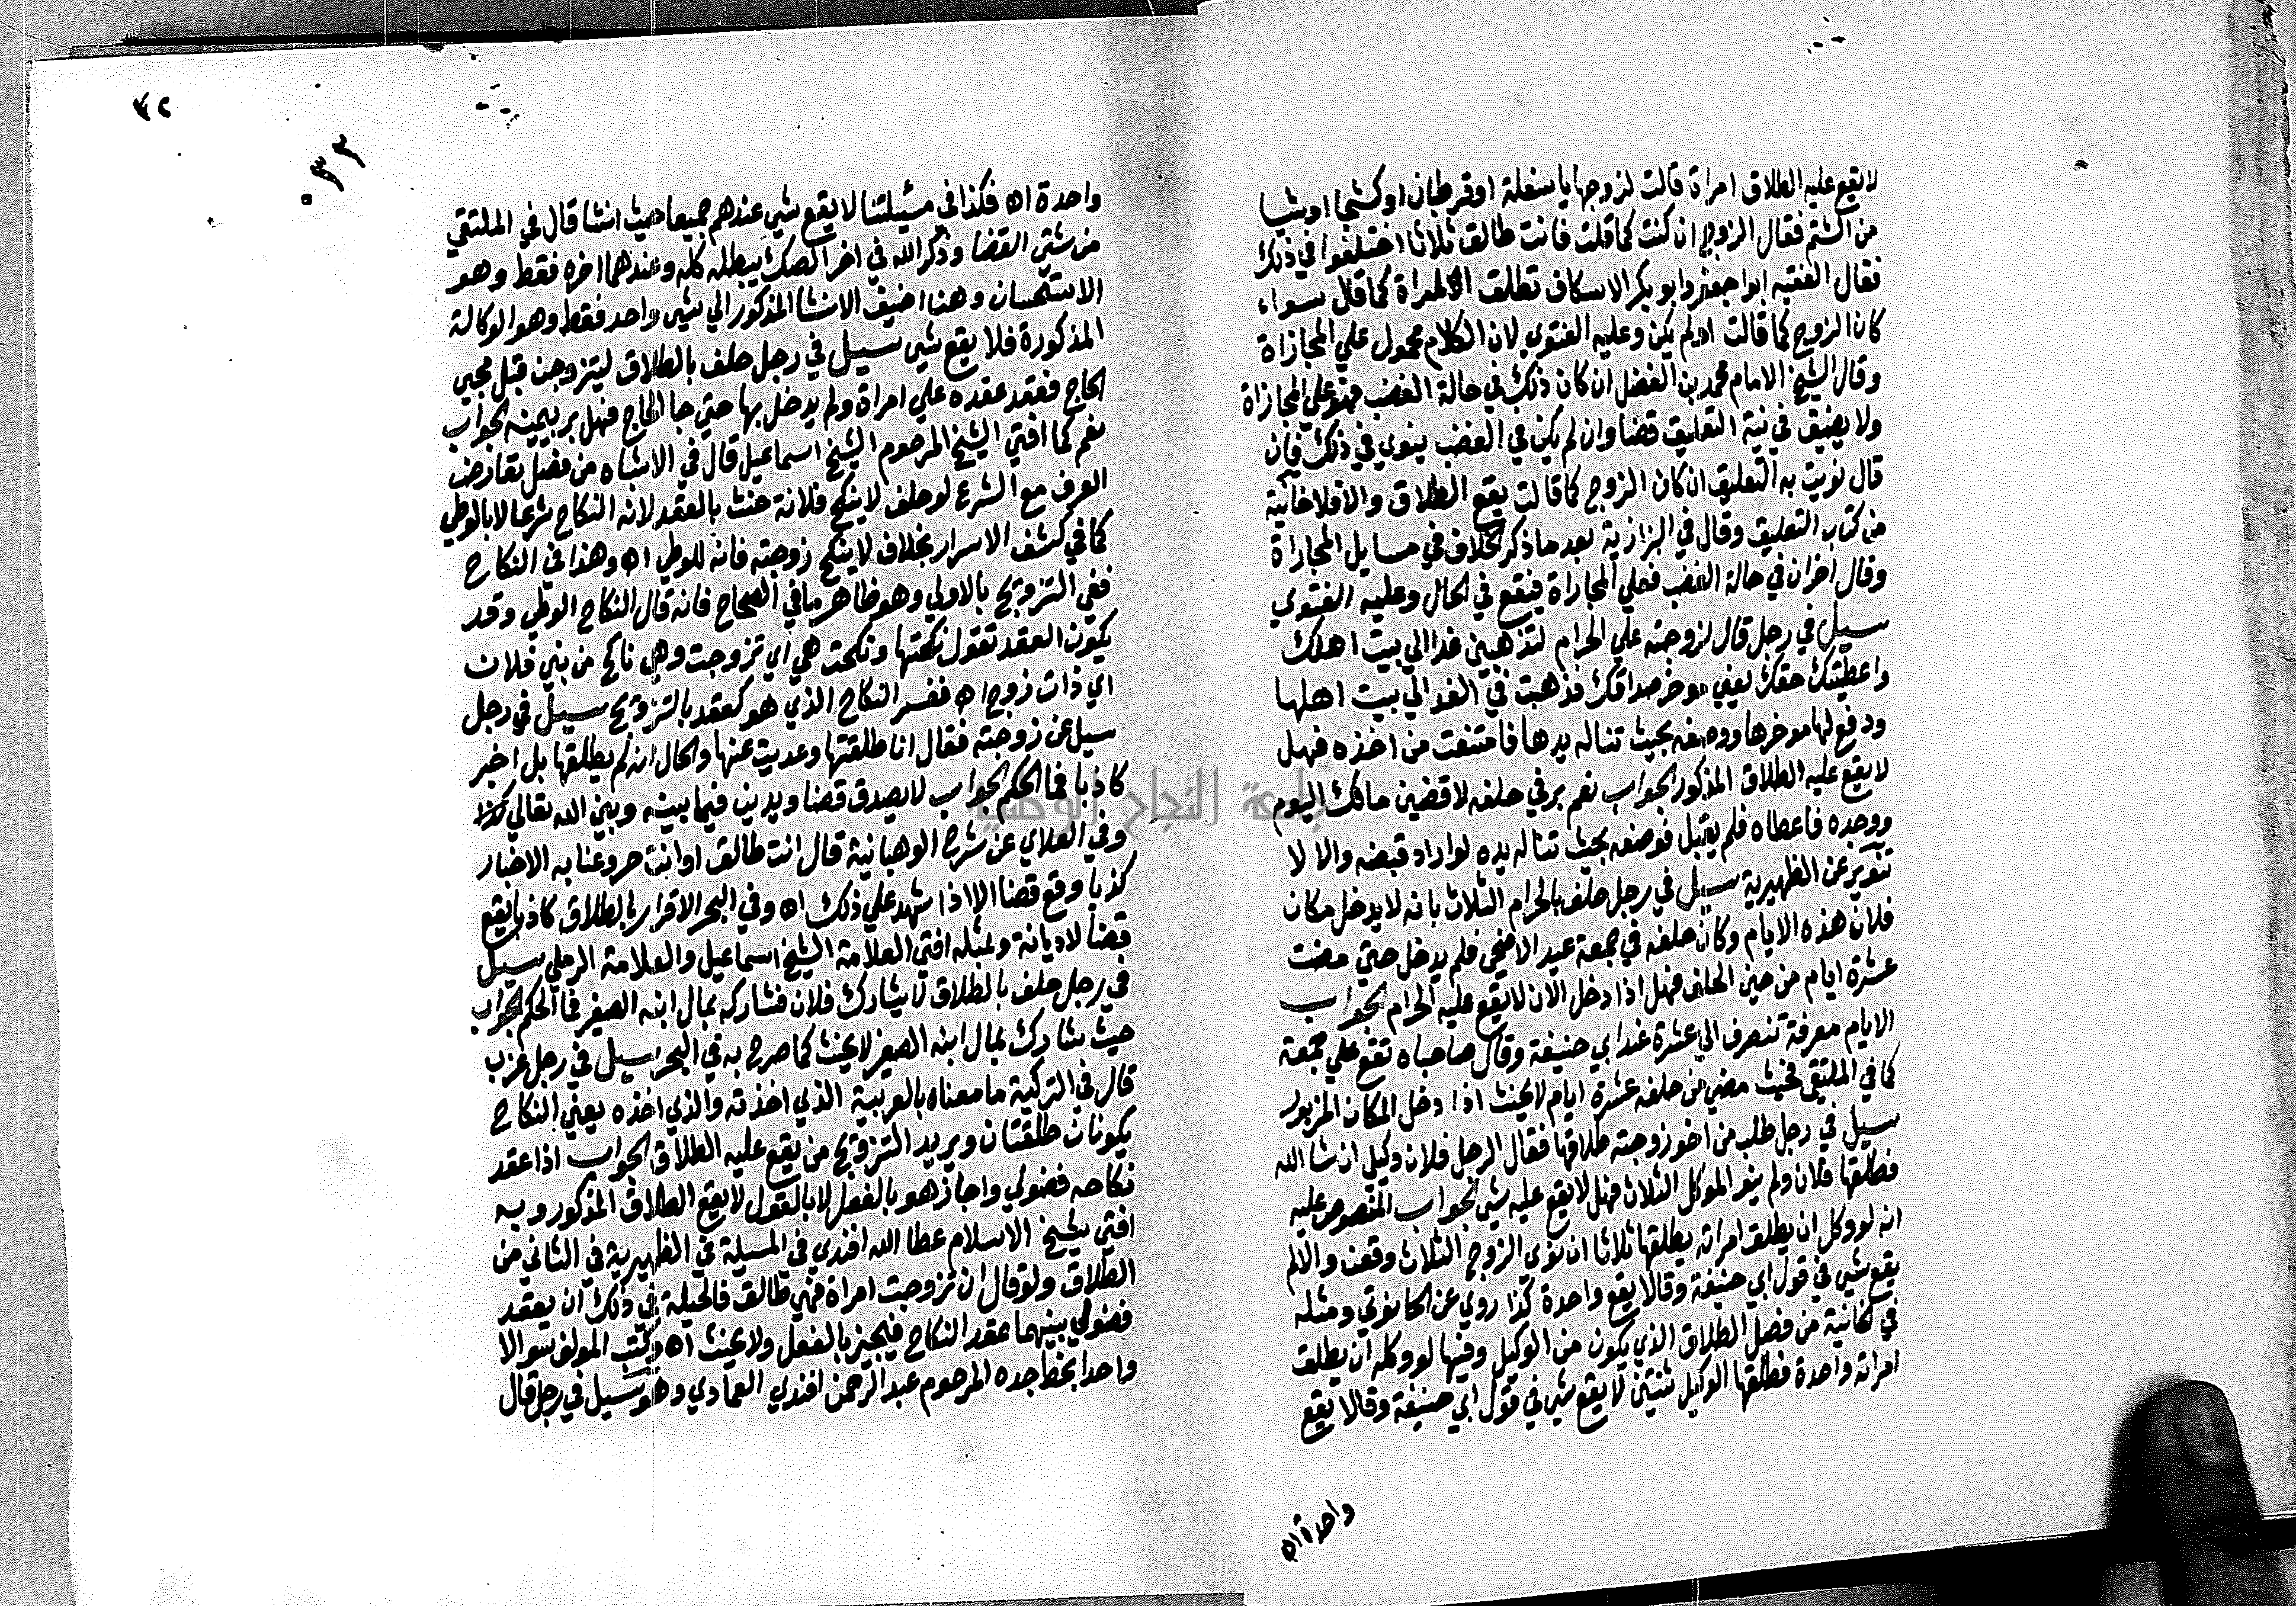 لا يقع عليه الطلاق امراة قالت لزوجها يا سفلة او قرطبان او كشحا او شيا
من الشتم فقال الزوج ان كنت كما قلت فانت طالق ثلاثا اختلفوا في ذلك
فقال الفقيه ابو جعفر وابو بكر الاسكاف تطلق المراة كما قال سواء
كان الزوج كما قالت او لم يكن وعليه الفتوي لان الكلام محمول علي المجازاة
وقال الشيخ الامام محمد بن الفضل ان كان ذلك في حالة الغضب فهو علي المجازاة
ولا يصدق في نية التعليق قضا وان لم يكن في الغضب ينوي في ذلك فان
قال نويت به التعليق ان كان الزوج كما قالت يقع الطلاق والا فلا خانية
من كتاب التعليق وقال في البزازية بعد ما ذكر الخلاف في مسايل المجازاة
وقال اخران في حالة الغضب فعلي المجازاة فيقع في الحال وعليه الفتوي
سيل في رجل قال لزوجته علي الحرام لتذهبين غدا الي بيت اهلك
واعطيتك حقك يعني موخر صداقك فذهبت في الغد الي بيت اهلها
ودفع لها موخرها ووضعه بحيث تناله يدها فامتنعت من اخذه فهل
لا يقع عليه الطلاق المذكور الجواب نعم بر في حلفه لاقضين مالك اليوم
ووجده فاعطاه فلم يقبل فوضعه بحيث تناله يده لو اراد قبضه والا لا
تنوير عن الظهيرية سيل في رجل حلف بالحرام الثلاث بانه لا يدخل مكان
فلان هذه الايام وكان حلفه في جمعة عيد الاضحي فلم يدخل حتي مضت
عشرة ايام من حين الحلف فهل اذا دخل الان لا يقع عليه الحرام الجواب
الايام معرفة تنصرف الي عشرة عند ابي حنيفة وقال صاحباه تقع علي جمعة
كما في الملتقي فحيث مضي من حلفه عشرة ايام لا يحنث اذا دخل المكان المزبور
سيل في رجل طلب من اخو زوجته طلاقها فقال الرجل فلان وكيلي ان شا الله
فطلقها فلان ولم ينو الموكل الثلاث فهل لا يقع عليه شي الجواب المنصوص عليه
انه لو وكل ان يطلق امراته يطلقها ثلاثا ان نوي الزوج الثلاث وقعن والا لم
يقع شي في قول ابي حنيفة وقالا يقع واحدة كذا روي عن الحانوتي ومثله
في الخانية من فصل الطلاق الذي يكون من الوكيل وفيها لو وكله ان يطلق
امراته واحدة فطلقها الوكيل ثنتين لا يقع شي في قول ابي حنيفة وقالا يقع
واحدة اه
٣٢
واحدة اه فكذا في مسيلتنا لا يقع شي عندهم جميعا حيث انشا قال في الملتقي
من شتي القضا وذكر الله في اخر الصك يبطله كله وعندهما اخره فقط وهو
الاستحسان وهنا اضيف الانشا المذكور الي شي واحد فقط وهو الوكالة
المذكورة فلا يقع شي سيل في رجل حلف بالطلاق ليتزوجن قبل مجي
الحاج فعقد عقده علي امراة ولم يدخل بها حتي جا الحاج فهل بر بيمينه الجواب
نعم كما افتي الشيخ المرحوم الشيخ اسماعيل قال في الاشباه من فصل تعارض
العرف مع الشرع لو حلف لا ينكح فلانة حنث بالعقد لانه النكاح شرعا لا بالوطي
كما في كشف الاسرار بخلاف لا ينكح زوجته فانه للوطي اه وهذا في النكاح
ففي التزويج بالاولي وهو ظاهر ما في الصحاح فانه قال النكاح الوطي وقد
يكون العقد تقول نكحتها ونكحت هي اي تزوجت وهي ناكح من بني فلان
اي ذات زوج اه ففسر النكاح الذي هو كعقد بالتزويج سيل في رجل
سيل عن زوجته فقال انا طلقتها وعديت عنها والحال انه لم يطلقها بل اخبر
كاذبا فما الحكم الجواب لا يصدق قضا ويدين فيما بينه وبين الله تعالي كذا
وفي العلاي عن شرح الوهبانية قال انت طالق او انت حر وعنا به الاخبار
كذبا وقع قضا الا اذا شهد علي ذلك اه وفي البحر الاقرار بالطلاق كاذبا يقع
قضا لا ديانة وبمثله افتي العلامة الشيخ اسماعيل والعلامة الرملي سيل
في رجل حلف بالطلاق لا يشارك فلان فشاركه بمال ابنه الصغير فما الحكم الجواب
حيث شارك بمال ابنه الصغير لا يحنث كما صرح به في البحر سيل في رجل عزب
قال في التركية ما معناه بالعربية الذي اخذته والذي اخذه يعني النكاح
يكونان طلقتان ويريد التزويج من يقع عليه الطلاق الجواب اذا عقد
نكاحه فضولي واجاز هو بالفعل لا بالقول لا يقع الطلاق المذكور وبه
افتي شيخ الاسلام عطا الله افندي في المسيلة في الظهيرية في الثاني من
الطلاق ولو قال ان تزوجت امراة فهي طالق فالحيلة في ذلك ان يعقد
فضولي بينهما عقد النكاح فيجيز بالفعل ولا يحنث اه وكتب المولف سوالا
واحدا بخط جده المرحوم عبد الرحمن افندي العمادي وهو سيل في رجل قال
جامعة النجاح الوطنية